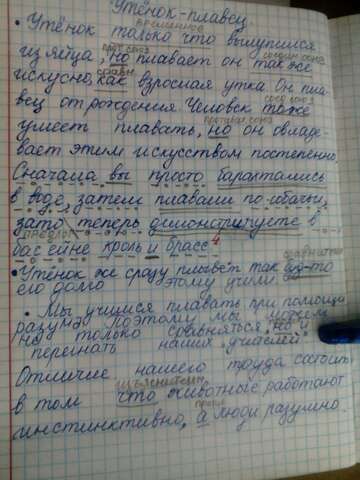 Утёнок-плавец.
временной
• Утёнок только что вылупился
из яйца, но плавает он так же
искусно, как взрослая утка. Он пла
вец от рождения. Человек тоже
умеет плавать, но он овладе-
вает этим искусством постепенно.
Сначала вы просто барахтались
в воде, затем плавали по-собачьи,
зато теперь демонстрируете в
бассейне кроль и брасс. 4
• Утёнок же сразу плывёт так будто
его долго этому учили
• Мы учимся плавать при помощи
разума. Поэтому мы можем
не только сравняться, но и
перегнать наших учителей.
Отличие нашего труда состоит
изъяснительн.
в том что животные работают
против.
инстинктивно, а люди разумно.